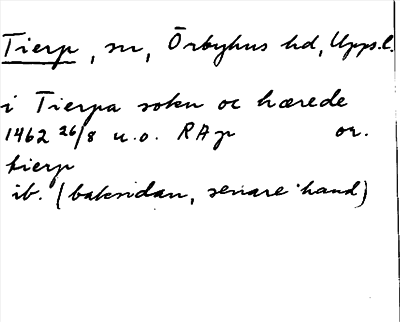 Tierp, sn, Örbyhus hd, Upps.l.
i Tierpa sokn oc hærede
1462 26/8 u.o. RAp or.
tierp
ib. (baksidan, senare hand)